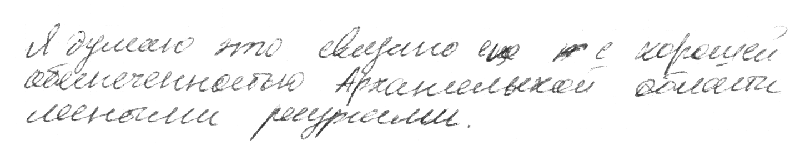 Я думаю это связано с хорошей
обеспеченностью Архангельской области
лесными ресурсами.